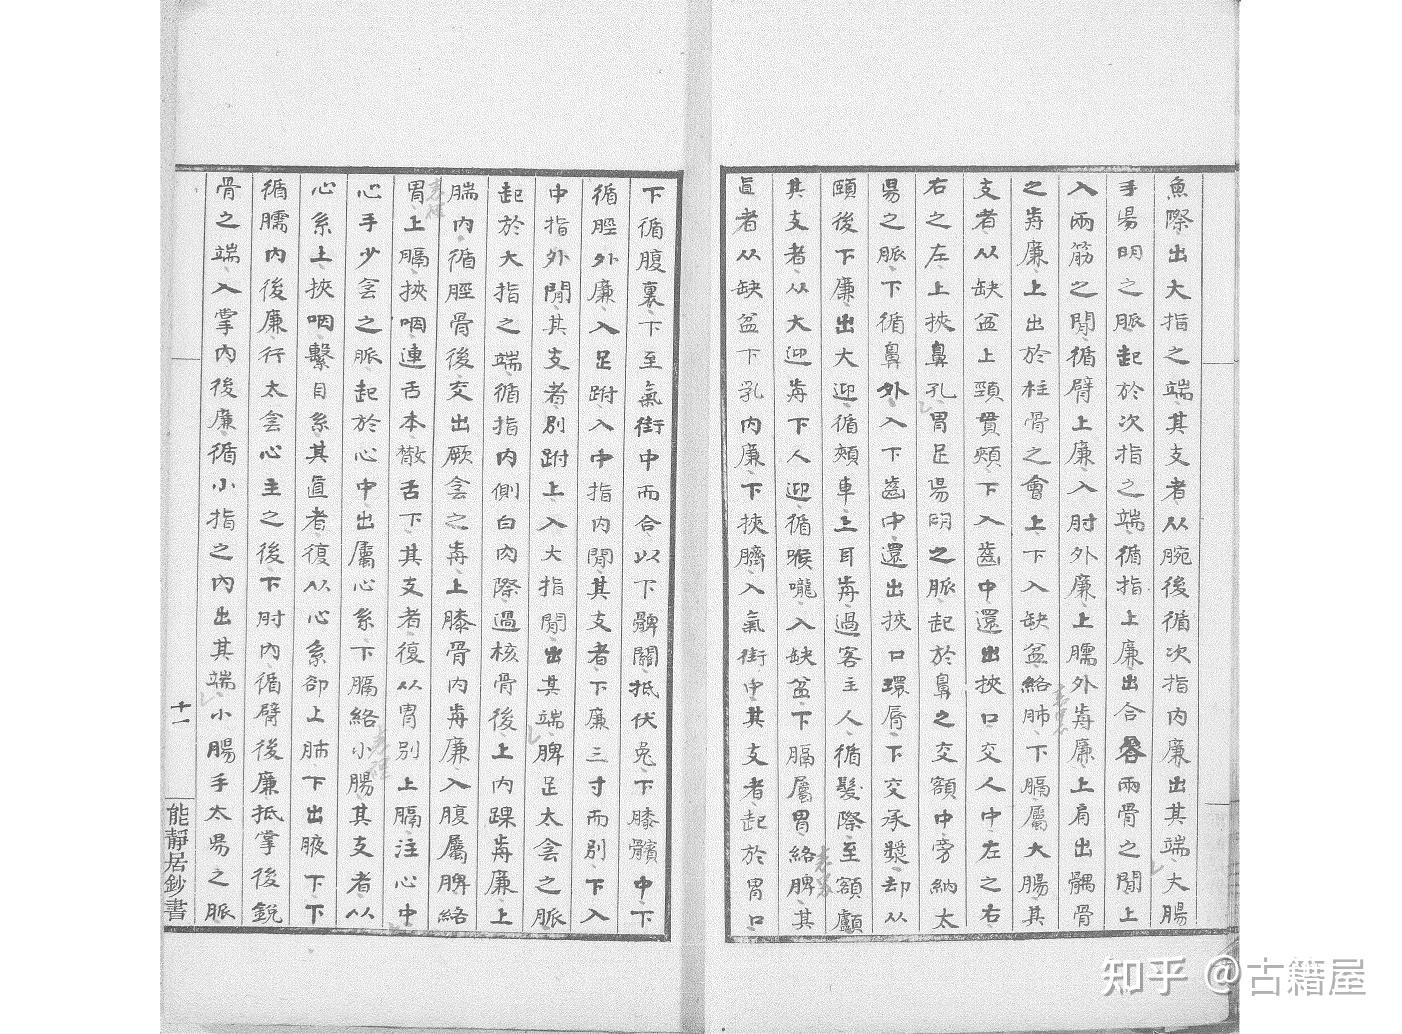 魚際出大指之端其支者从腕後循次指内廉出其端大腸
手昜明之脈起於次指之端循指上廉出合谷兩骨之閒上
入兩筋之閒循臂上廉入肘外廉上臑外歬廉上肩出髃骨
之歬廉上出於柱骨之會上下入缺盆絡肺下膈屬大腸其
支者从缺盆上頸貫頰下入齒中還出挾口交人中左之右
右之左上挾鼻孔胃足昜明之脈起於鼻之交頞中旁納太
昜之脈下循鼻外入下齒中還出挾口環脣下交承漿却从
頤後下廉出大迎循頰車上耳歬過客主人循髮際至額顱
其支者从大迎歬下人迎循喉嚨入缺盆下膈屬胃絡脾其
直者从缺盆下乳内廉下挾臍入氣街中其支者起於胃口
下循腹裏下至氣街中而合以下髀關抵伏兔下膝臏中下
循脛外廉入足跗入中指内閒其支者下廉三寸而别下入
中指外閒其支者别跗上入大指閒出其端脾足太侌之脈
起於大指之端循指内側白肉際過核骨後上内踝歬廉上
腨内循脛骨後交出厥侌之歬上膝骨内歬廉入腹屬脾絡
胃上膈挾咽連舌本散舌下其支者復从胃别上膈注心中
心手少侌之脈起於心中出屬心系下膈絡小腸其支者从
心系上挾咽繫目系其直者復从心系卻上肺下出腋下下
循臑内後廉行太侌心主之後下肘内循臂後廉抵掌後銳
骨之端入掌内後廉循小指之内出其端小腸手太昜之脈
十一
能靜居鈔書
知乎 @古籍屋